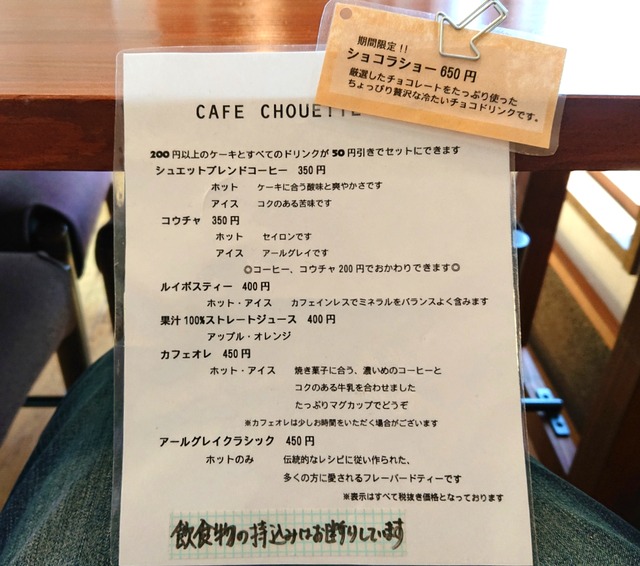 期間限定!!
ショコラショー 650円
厳選したチョコレートをたっぷり使った
ちょっぴり贅沢な冷たいチョコドリンクです。
CAFE CHOUETTE
200円以上のケーキとすべてのドリンクが50円引きでセットにできます
シュエットブレンドコーヒー 350円
ホット ケーキに合う酸味と爽やかさです
アイス コクのある苦味です
コウチャ 350円
ホット セイロンです
アイス アールグレイです
◎コーヒー、コウチャ200円でおかわりできます◎
ルイボスティー 400円
ホット・アイス カフェインレスでミネラルをバランスよく含みます
果汁100%ストレートジュース 400円
アップル・オレンジ
カフェオレ 450円
ホット・アイス 焼き菓子に合う、濃いめのコーヒーと
コクのある牛乳を合わせました
たっぷりマグカップでどうぞ
※カフェオレは少しお時間をいただく場合がございます
アールグレイクラシック 450円
ホットのみ 伝統的なレシピに従い作られた、
多くの方に愛されるフレーバードティーです
※表示はすべて税抜き価格となっております
飲食物の持込みはお断りしています